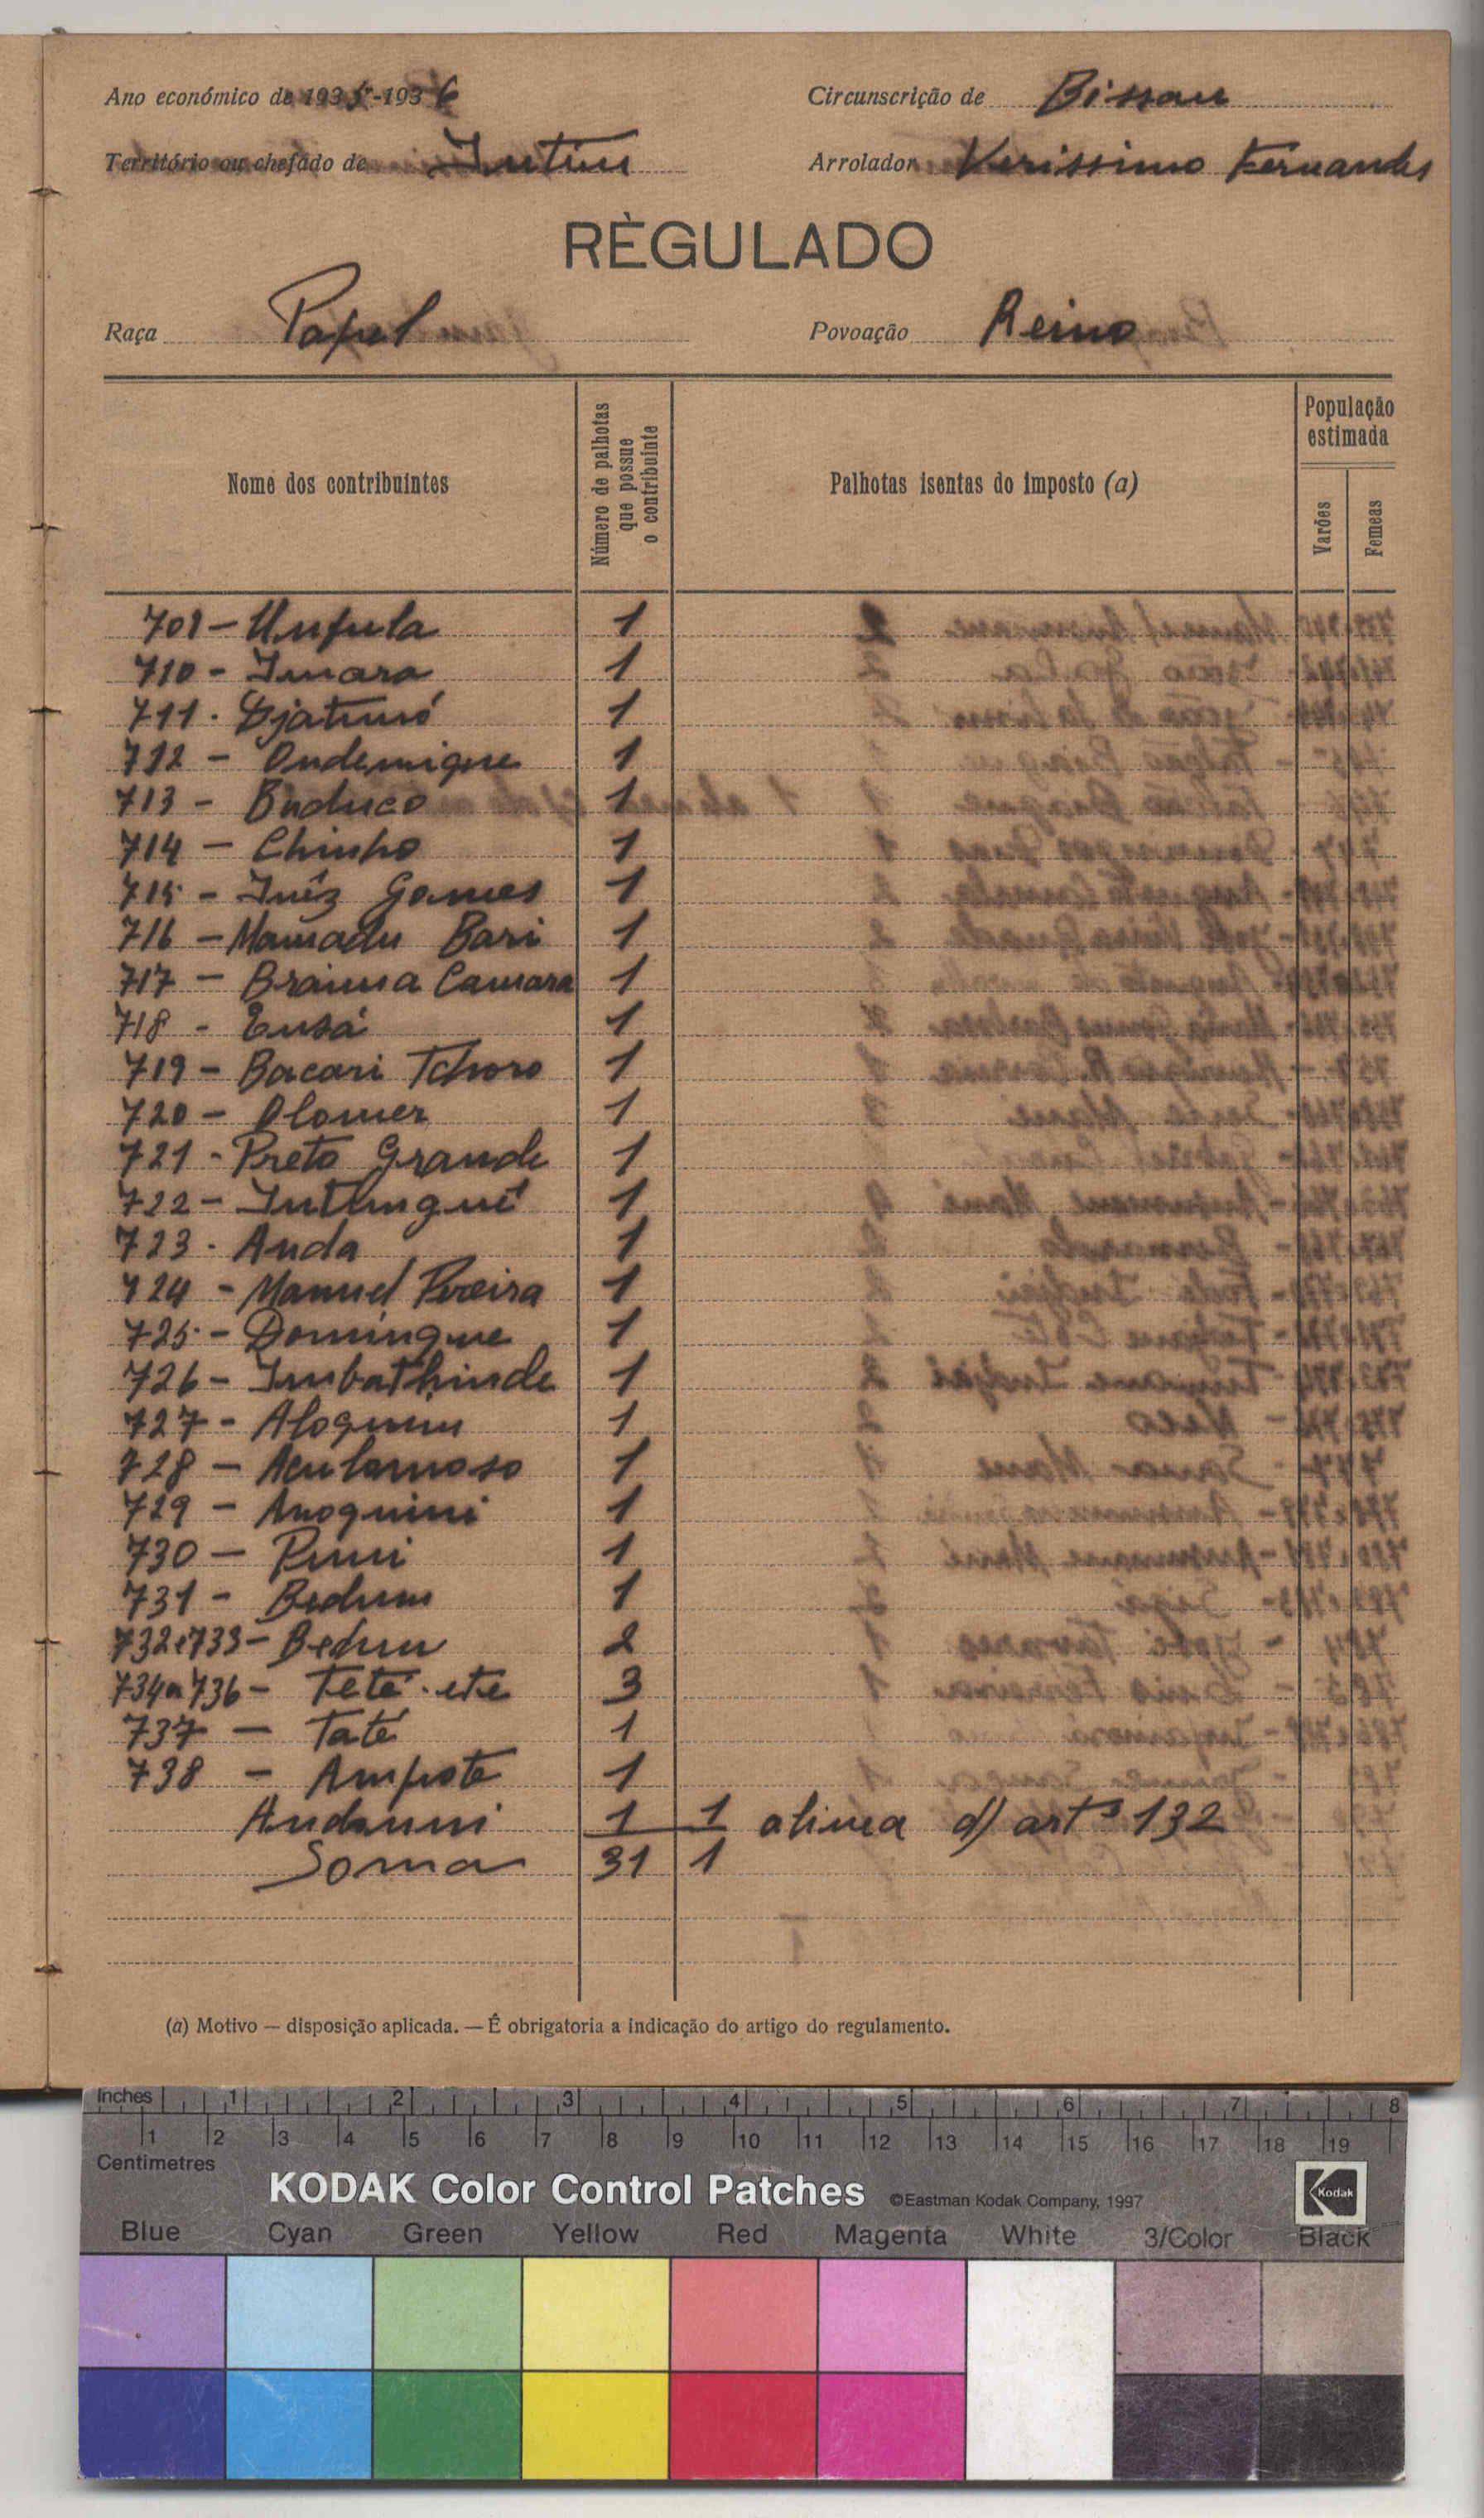 Ano económico de 1935-1936 Circunscrição de Bissau
Território ou chefado de Intim Arrolador Verissimo Fernandes
RÈGULADO
Raça Papel Povoação Reino
Nome dos contribuintes
Número de palhotas que possue o contribuinte
Palhotas isentas do imposto (a)
População estimada
Varões
Femeas
709 - Unfula 1
710 - Inara 1
711 - Djatumó 1
712 - Ondemique 1
713 - Buduco 1
714 - Chinho 1
715 - Inêz Gomes 1
716 - Mamadu Bari 1
717 - Braima Camara 1
718 - Eusá 1
719 - Bacari Tchoro 1
720 - Olomer 1
721 - Preto Grande 1
722 - Intungué 1
723 - Anda 1
724 - Manuel Pereira 1
725 - Domingue 1
726 - Imbathinde 1
727 - Aloquim 1
728 - Aculamoso 1
729 - Anoquini 1
730 - Puni 1
731 - Bedum 1
732 e 733 - Bedum 2
734 a 736 - Teté-eté 3
737 - Taté 1
738 - Ampote 1
Andamni 1 1 alinea d) artº 132
Soma 31 1
(a) Motivo — disposição aplicada. — É obrigatoria a indicação do artigo do regulamento.
Inches 1 2 3 4 5 6 7 8
1 2 3 4 5 6 7 8 9 10 11 12 13 14 15 16 17 18 19
Centimetres
KODAK Color Control Patches ©Eastman Kodak Company, 1997 Kodak
Blue Cyan Green Yellow Red Magenta White 3/Color Black